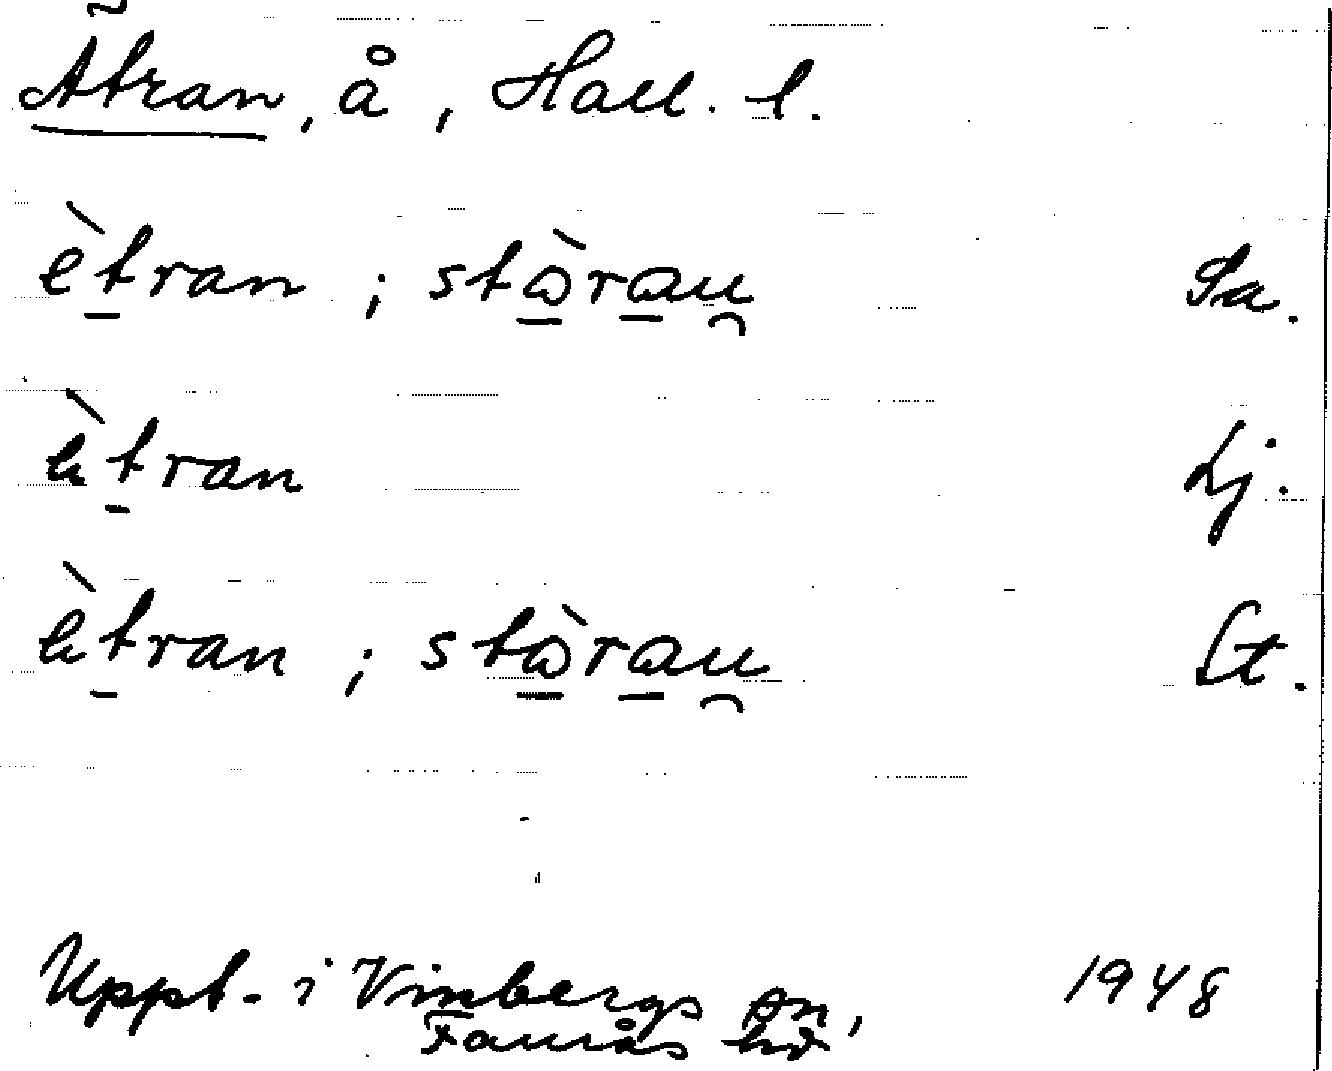 Ätran, å, Hall. l.
ètran ; stòrau Sa.
ètran Lj.
ètran ; stòrau St.
Uppt. i Vinbergs sn, 1948
Faurås hd